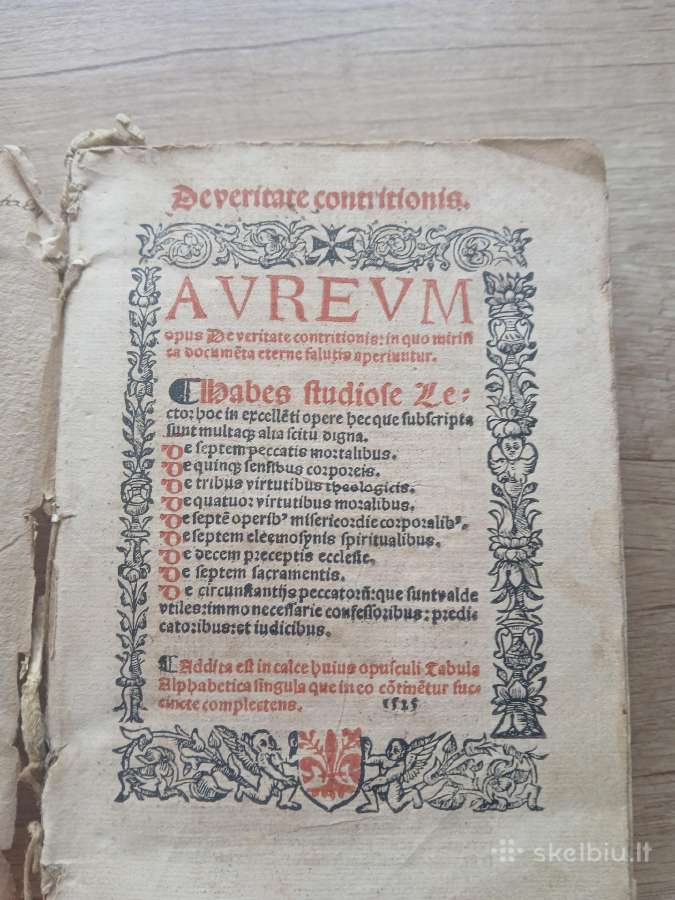 De veritate contritionis.
AVREVM
opus De veritate contritionis: in quo mirifi
ca documēta eterne salutis aperiuntur.
Habes studiose Le-
ctor hoc in excellēti opere hec que subscripta
sunt multaqȝ alia scitu digna.
De septem peccatis mortalibus.
De quinqȝ sensibus corporeis.
De tribus virtutibus theologicis.
De quatuor virtutibus moralibus.
De septē operibꝰ misericordie corporalibꝰ.
De septem eleemosynis spiritualibus.
De decem preceptis ecclesie.
De septem sacramentis.
De circunstantijs peccatorū: que sunt valde
vtiles: immo necessarie confessoribus: predi-
catoribus: et iudicibus.
Addita est in calce huius opusculi Tabula
Alphabetica singula que in eo cōtinētur suc-
cincte complectens. 1525
skelbiu.lt